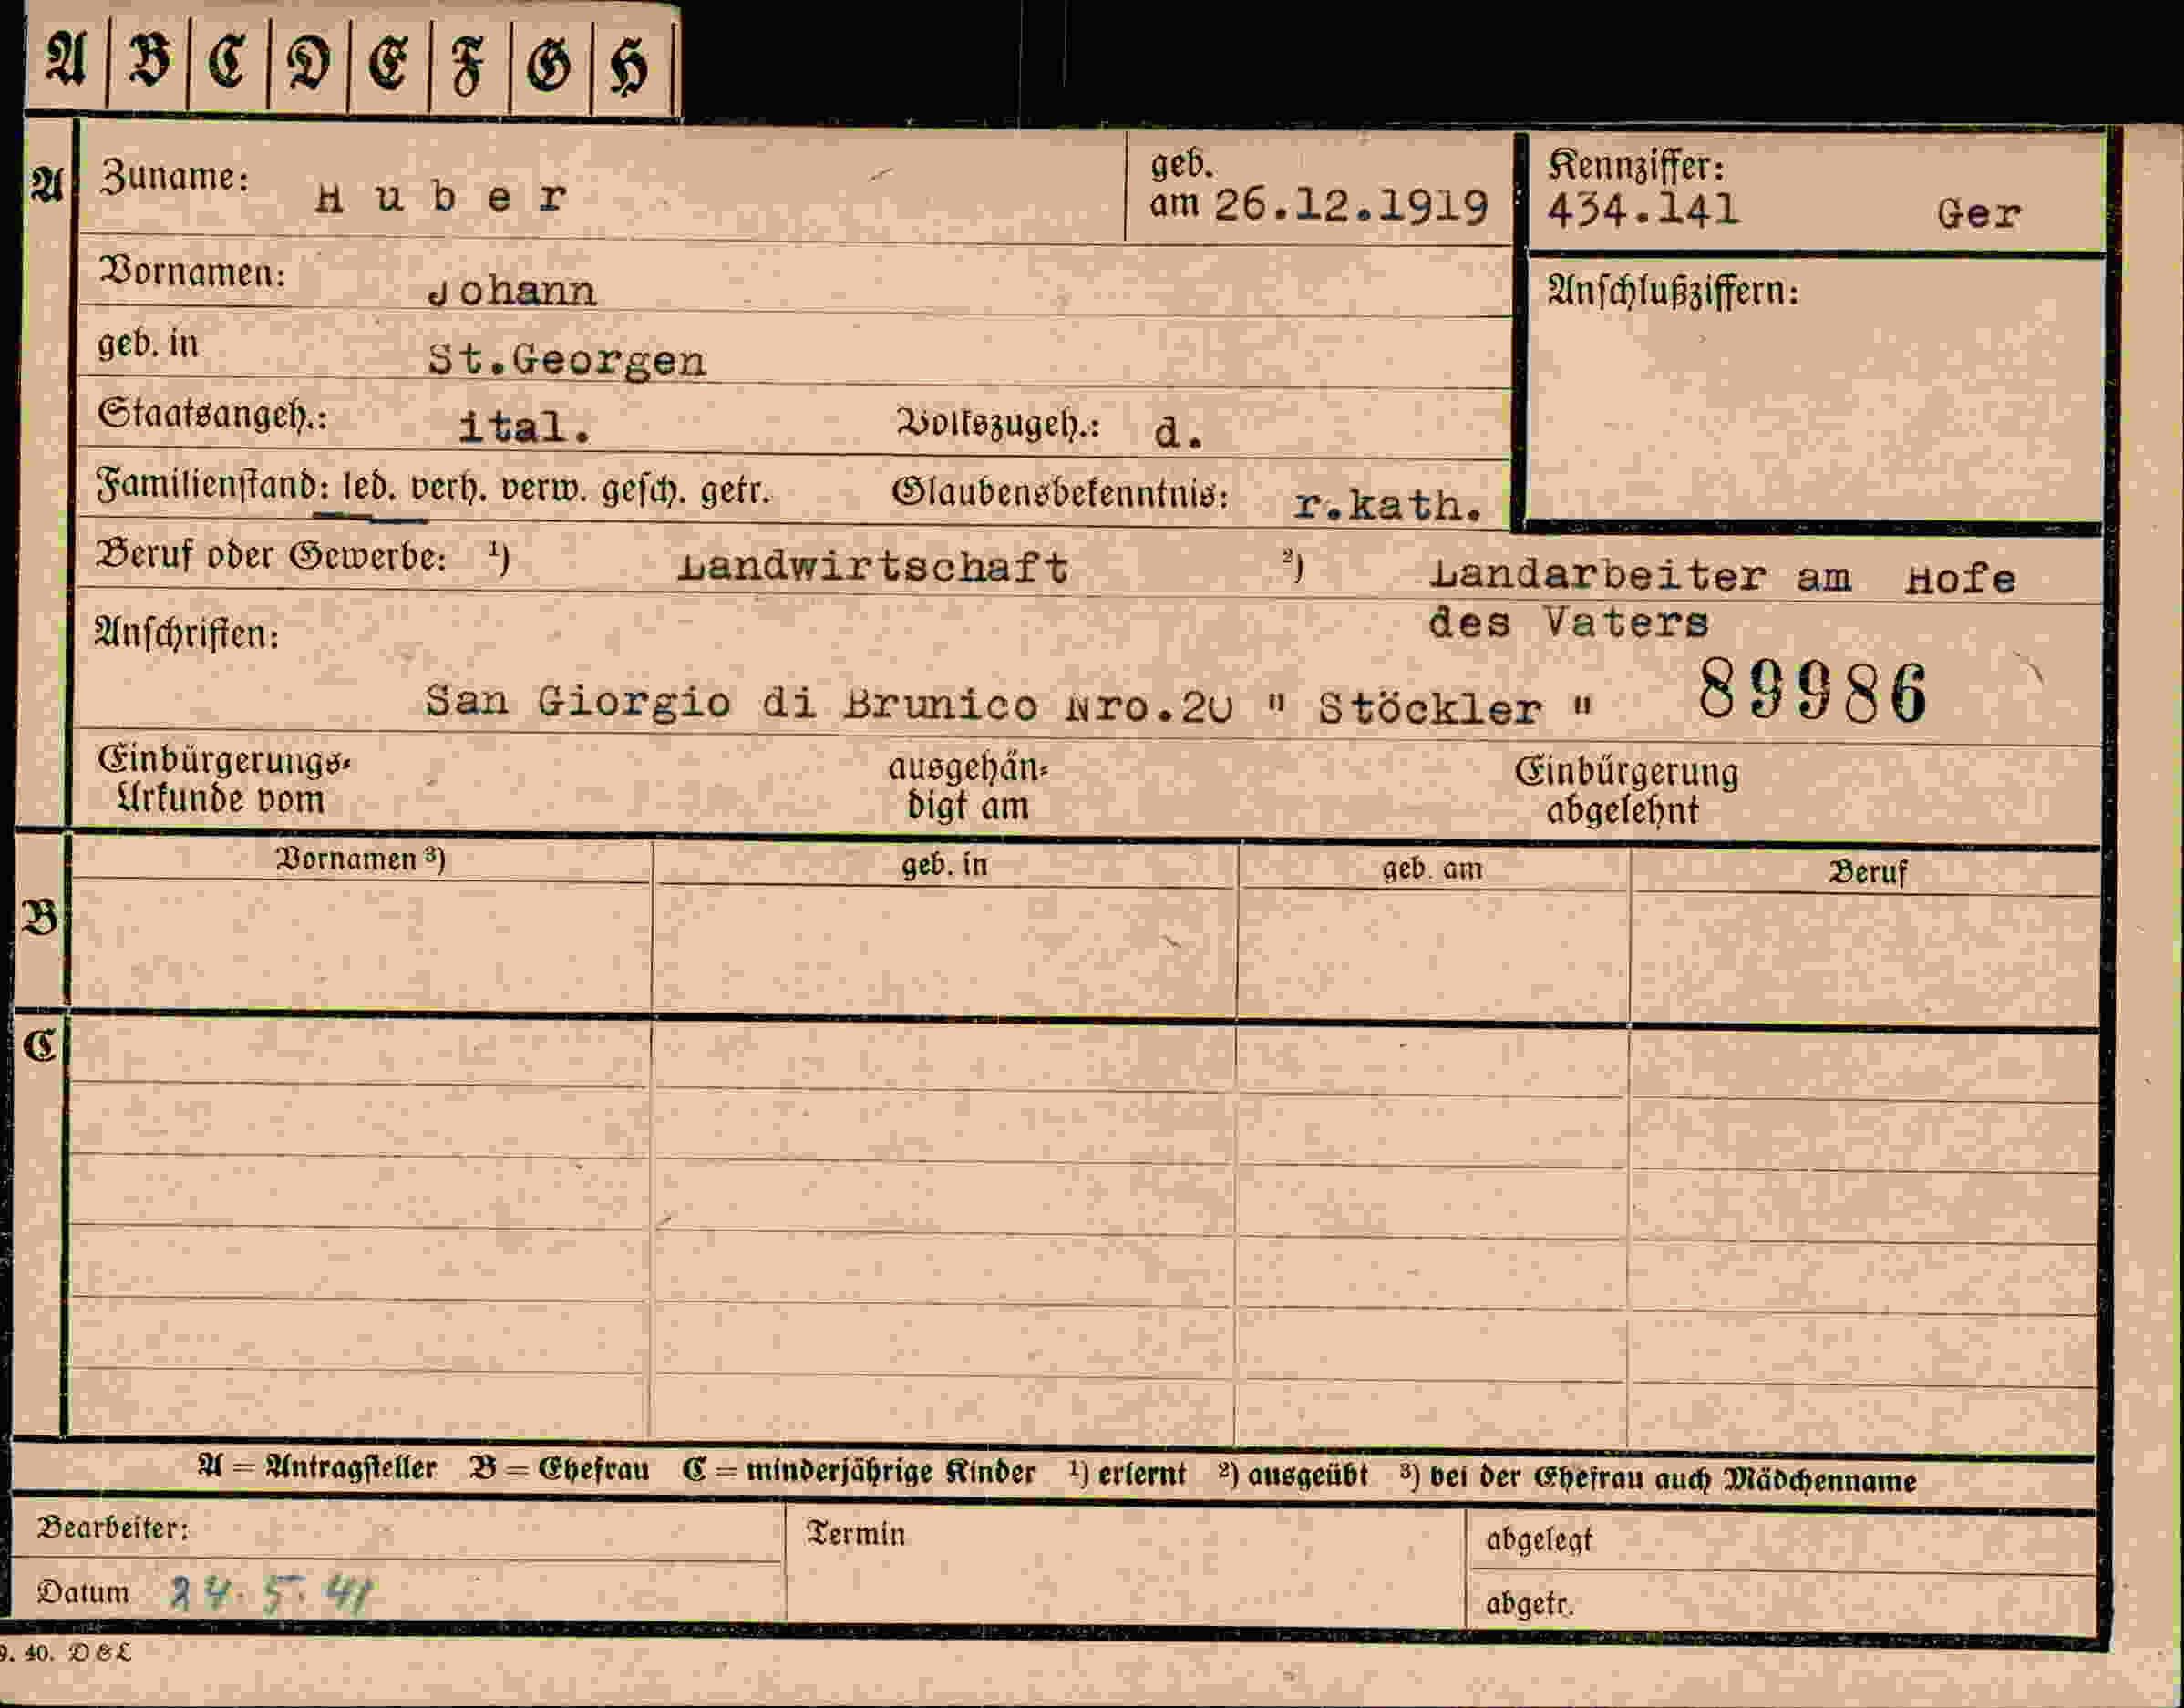 A B C D E F G H
A Zuname: Huber geb. am 26.12.1919 Kennziffer: 434.141 Ger
Vornamen: Johann Anschlußziffern:
geb. in St.Georgen
Staatsangeh.: ital. Volkszugeh.: d.
Familienstand: led. verh. verw. gesch. getr. Glaubensbekenntnis: r.kath.
Beruf oder Gewerbe: ¹) Landwirtschaft ²) Landarbeiter am Hofe
des Vaters
Anschriften:
San Giorgio di Brunico Nro.20 " Stöckler " 89986
Einbürgerungs- ausgehän- Einbürgerung
Urkunde vom digt am abgelehnt
Vornamen ³) geb. in geb. am Beruf
B
C
A = Antragsteller B = Ehefrau C = minderjährige Kinder ¹) erlernt ²) ausgeübt ³) bei der Ehefrau auch Mädchenname
Bearbeiter: Termin abgelegt
Datum 24.5.41 abgetr.
9. 40. D & L